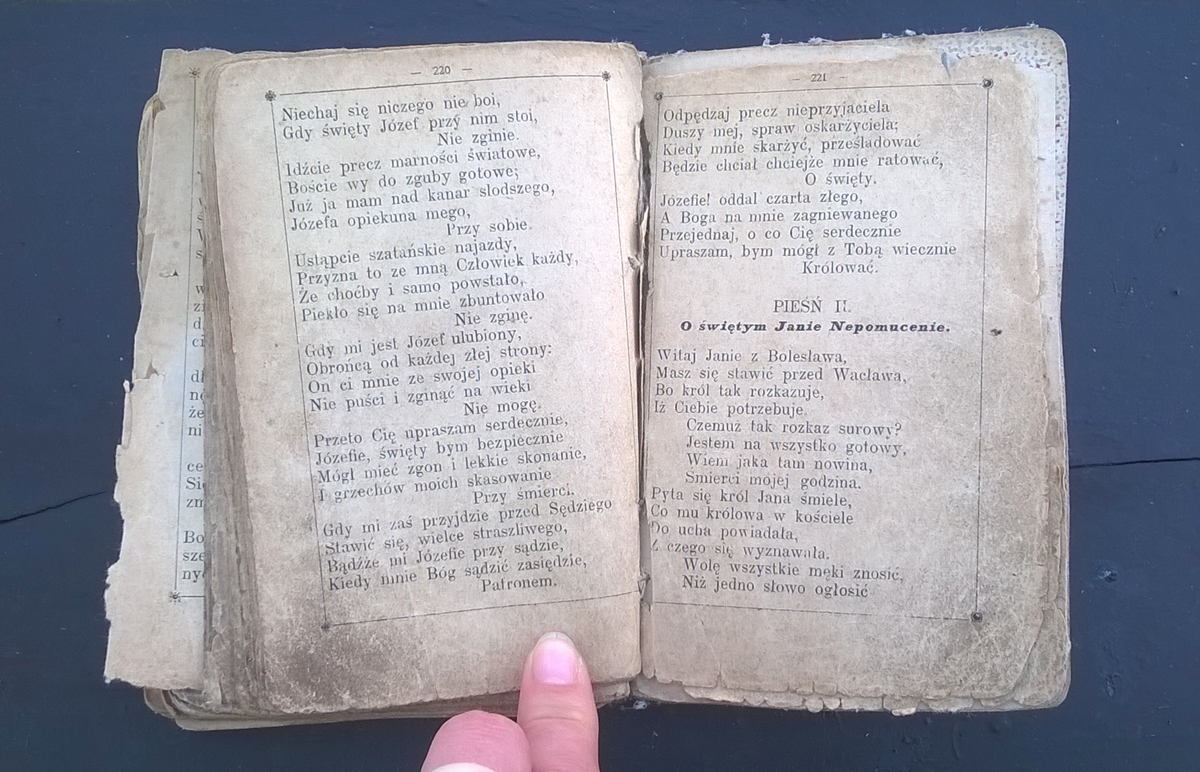 — 220 —
Niechaj się niczego nie boi,
Gdy święty Józef przy nim stoi,
Nie zginie.
Idźcie precz marności światowe,
Boście wy do zguby gotowe;
Już ja mam nad kanar słodszego,
Józefa opiekuna mego,
Przy sobie.
Ustąpcie szatańskie najazdy,
Przyzna to ze mną Człowiek każdy,
Że choćby i samo powstało,
Piekło się na mnie zbuntowało
Nie zginę.
Gdy mi jest Józef ulubiony,
Obrońcą od każdej złej strony:
On ci mnie ze swojej opieki
Nie puści i zginąć na wieki
Nie mogę.
Przeto Cię upraszam serdecznie,
Józefie, święty bym bezpiecznie
Mógł mieć zgon i lekkie skonanie,
I grzechów moich skasowanie
Przy śmierci.
Gdy mi zaś przyjdzie przed Sędziego
Stawić się, wielce straszliwego,
Bądźże mi Józefie przy sądzie,
Kiedy mnie Bóg sądzić zasiędzie,
Patronem.
— 221 —
Odpędzaj precz nieprzyjaciela
Duszy mej, spraw oskarżyciela;
Kiedy mnie skarżyć, prześladować
Będzie chciał chciejże mnie ratować,
O święty.
Józefie! oddal czarta złego,
A Boga na mnie zagniewanego
Przejednaj, o co Cię serdecznie
Upraszam, bym mógł z Tobą wiecznie
Królować.
PIEŚŃ II.
O świętym Janie Nepomucenie.
Witaj Janie z Bolesława,
Masz się stawić przed Wacława,
Bo król tak rozkazuje,
Iż Ciebie potrzebuje.
Czemuż tak rozkaz surowy?
Jestem na wszystko gotowy,
Wiem jaka tam nowina,
Śmierci mojej godzina.
Pyta się król Jana śmiele,
Co mu królowa w kościele
Do ucha powiadała,
Z czego się wyznawała.
Wolę wszystkie męki znosić,
Niż jedno słowo ogłosić